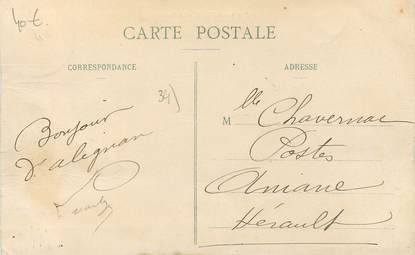 40 €.
CARTE POSTALE
CORRESPONDANCE
34)
Bonjour
D'alignan
ADRESSE
Mlle Chavernac
Postes
Aniane
Hérault